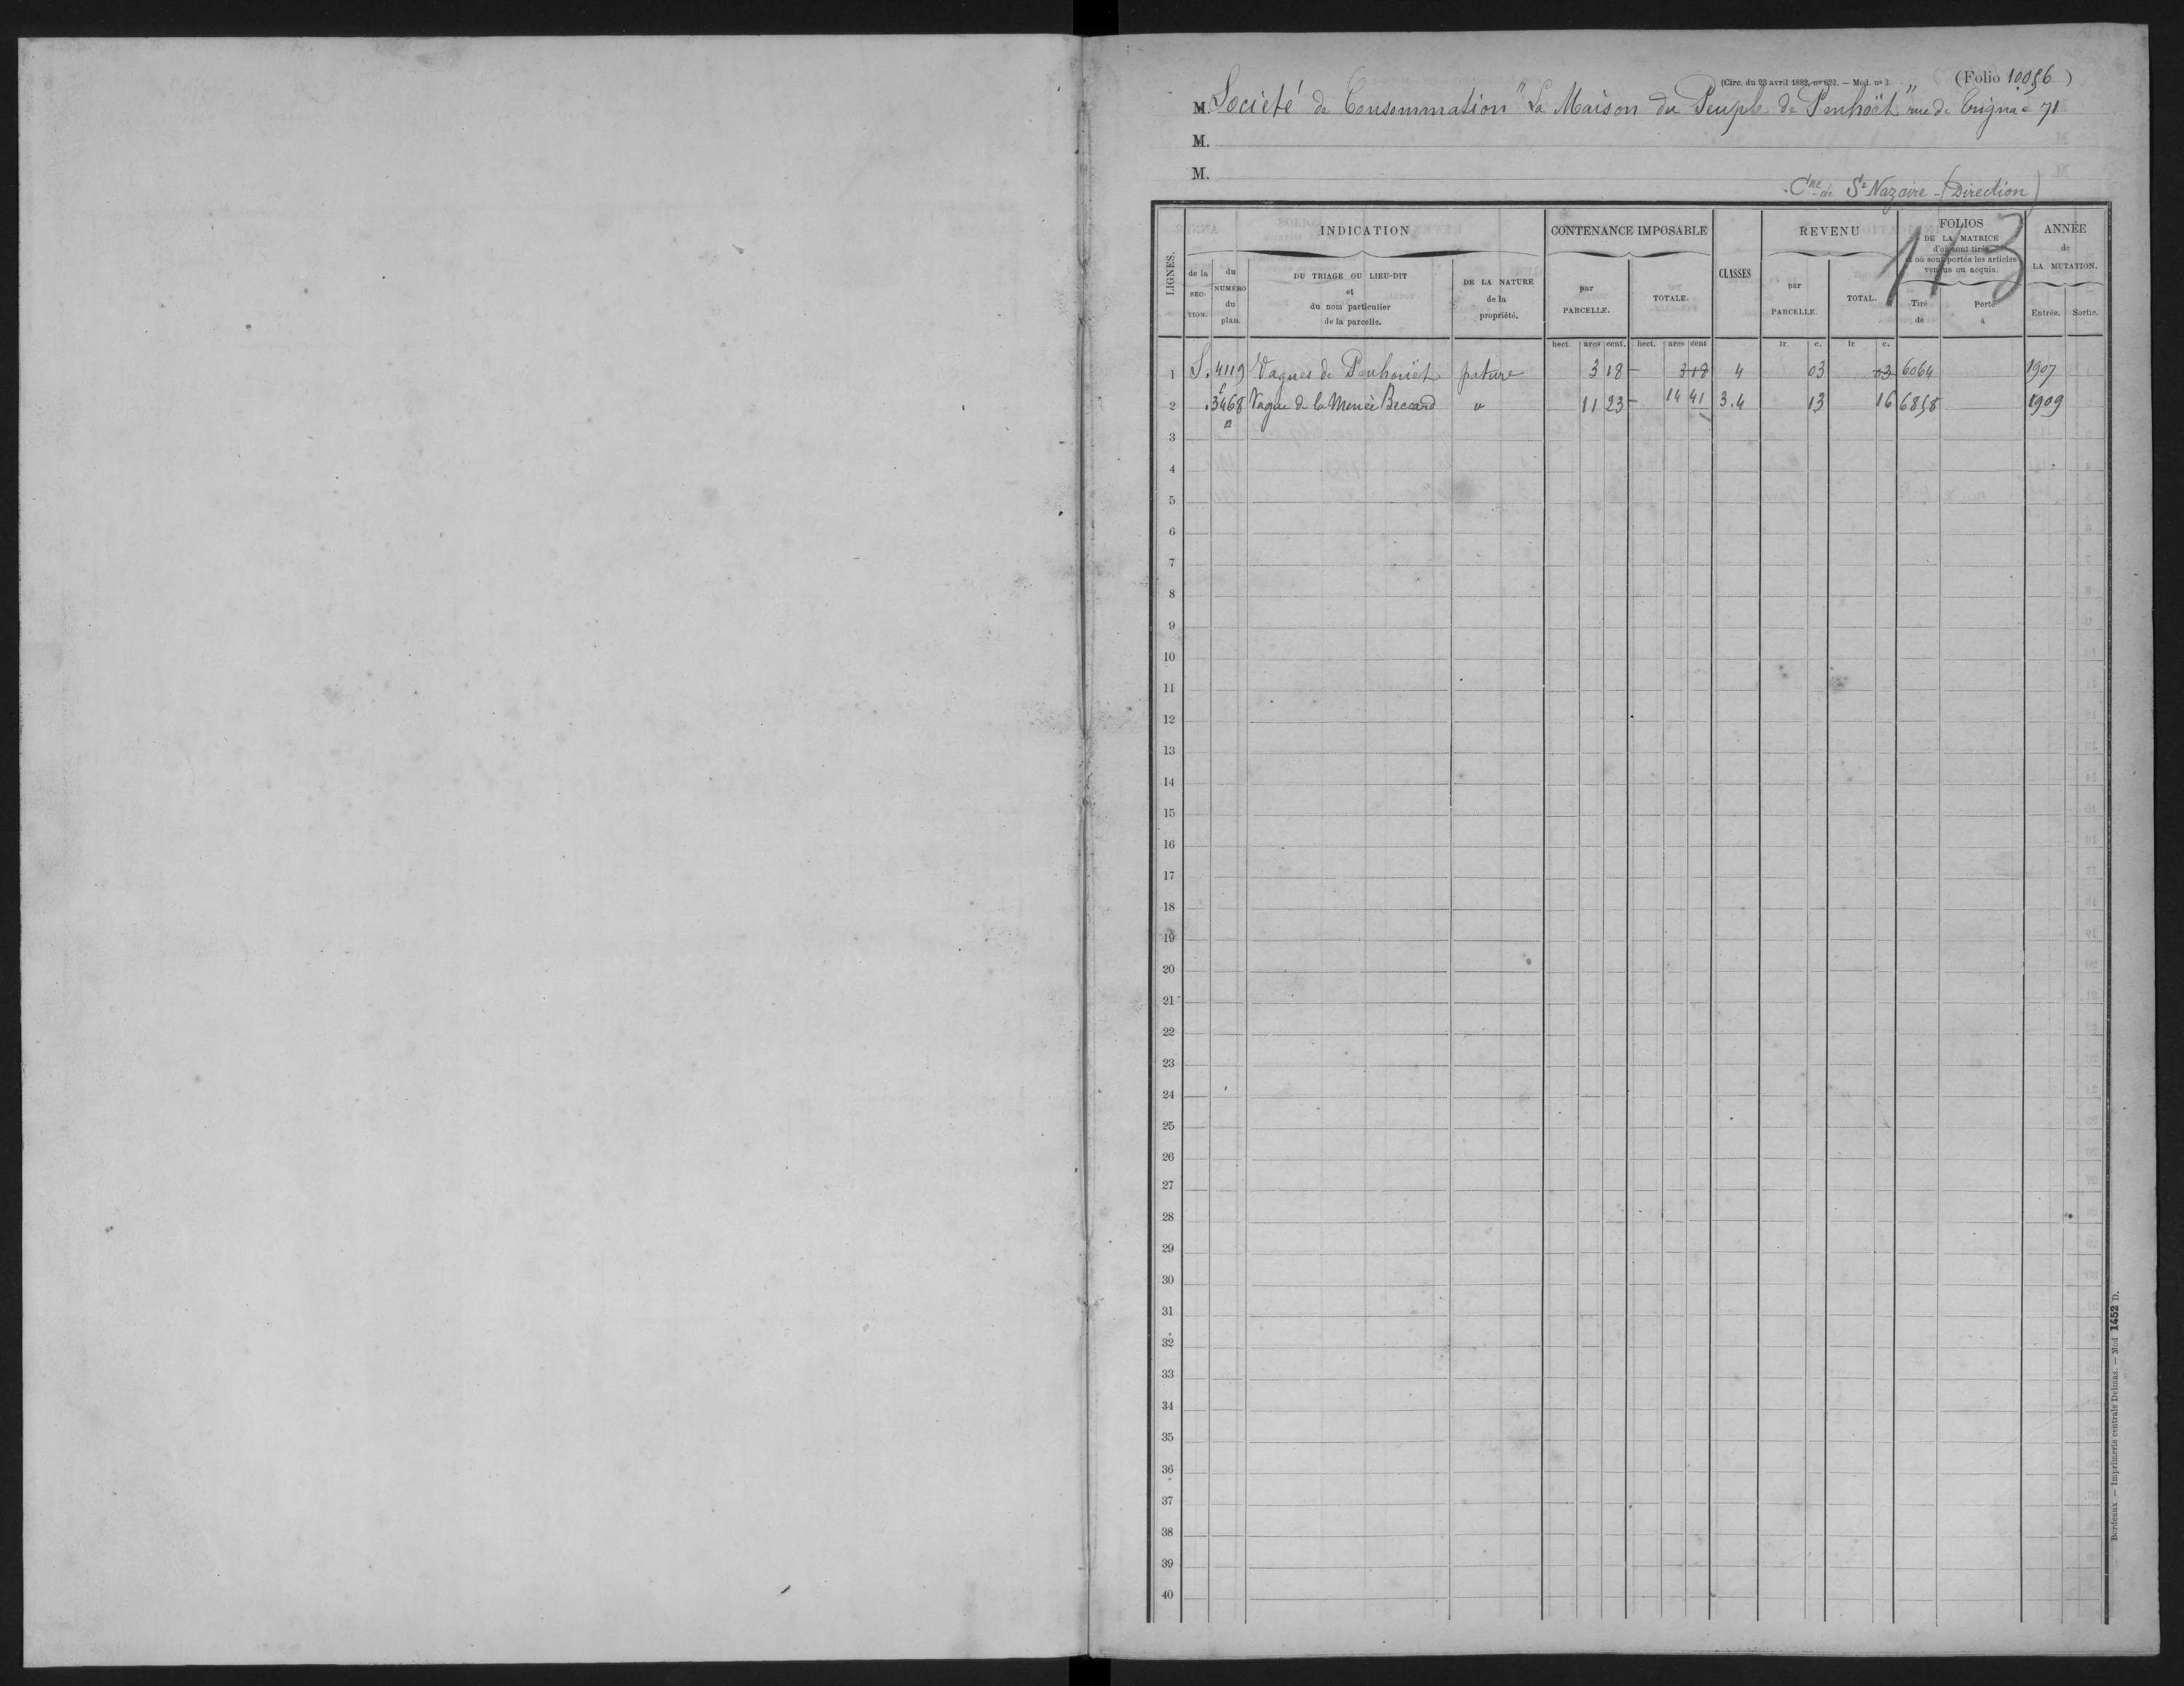 (Circ. du 23 avril 1882, nº 622. — Mod. nº 3.
(Folio 10056)
M. Société de Consommation "La Maison du Peuple de Penhoët" rue de Trignac 71
M.
M.
Cne de St Nazaire - (Direction)
113
LIGNES.
INDICATION
CONTENANCE IMPOSABLE
CLASSES
REVENU
FOLIOS
DE LA MATRICE
d'où sont tirés
et où sont portés les articles
vendus ou acquis.
ANNÉE
de
LA MUTATION.
de la
SEC-
TION.
du
NUMÉRO
du
plan.
DU TRIAGE OU LIEU-DIT
et
du nom particulier
de la parcelle.
DE LA NATURE
de la
propriété.
par
PARCELLE.
TOTALE.
par
PARCELLE.
TOTAL.
Tiré
de
Porté
à
Entrée.
Sortie.
hect. ares cent. hect. ares cent fr c. fr c.
1 S. 4119 Vagues de Penhouët pature 3 18 3 18 4 03 03 6064 1907
2 3468 Vague de la Menée Beccard 11 23 14 41 3.4 13 16 6858 1909
3
4
5
6
7
8
9
10
11
12
13
14
15
16
17
18
19
20
21
22
23
24
25
26
27
28
29
30
31
32
33
34
35
36
37
38
39
40
Bordeaux. — Imprimerie centrale Delmas. — Mod 1452 D.